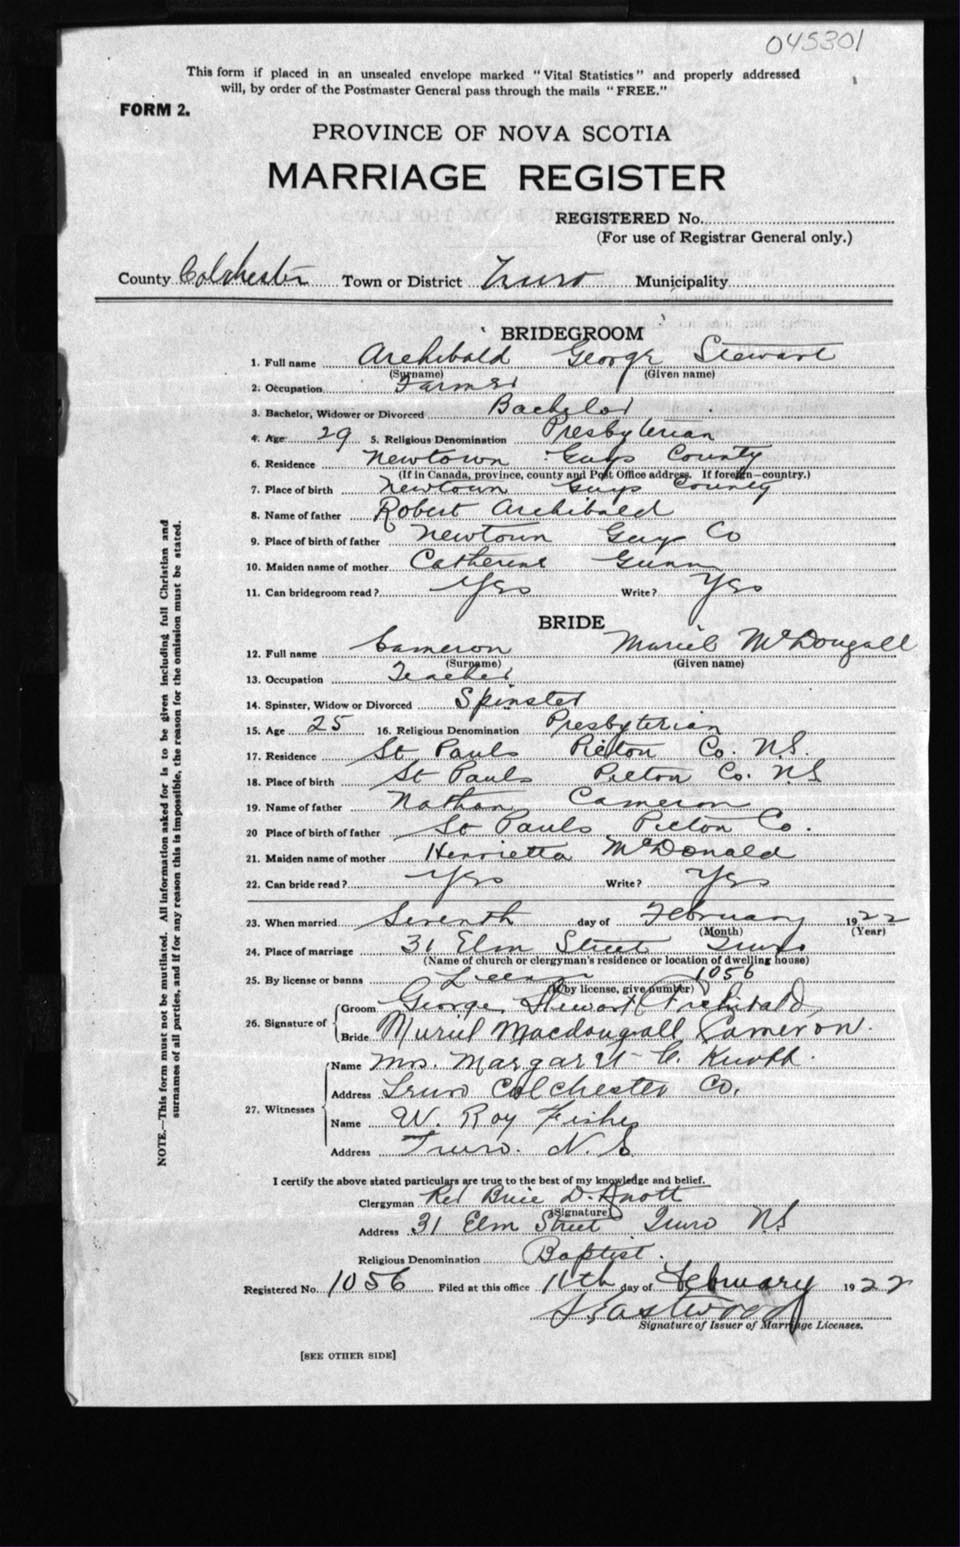 045301
This form if placed in an unsealed envelope marked "Vital Statistics" and properly addressed
will, by order of the Postmaster General pass through the mails "FREE."
FORM 2.
PROVINCE OF NOVA SCOTIA
MARRIAGE REGISTER
REGISTERED No.
(For use of Registrar General only.)
County Colchester Town or District Truro Municipality
BRIDEGROOM
1. Full name Archibald George Stewart
(Surname) (Given name)
2. Occupation Farmer
3. Bachelor, Widower or Divorced Bachelor
4. Age 29 5. Religious Denomination Presbyterian
6. Residence Newtown Guys County
(If in Canada, province, county and Post Office address. If foreign—country.)
7. Place of birth Newtown Guys County
8. Name of father Robert Archibald
9. Place of birth of father Newtown Guys Co
10. Maiden name of mother Catherine Gunn
11. Can bridegroom read? Yes Write? Yes
BRIDE
12. Full name Cameron Muriel McDougall
(Surname) (Given name)
13. Occupation Teacher
14. Spinster, Widow or Divorced Spinster
15. Age 25 16. Religious Denomination Presbyterian
17. Residence St Pauls Pictou Co. N.S.
18. Place of birth St Pauls Pictou Co. NS
19. Name of father Nathan Cameron
20 Place of birth of father St Pauls Pictou Co.
21. Maiden name of mother Henrietta McDonald
22. Can bride read? Yes Write? Yes
23. When married Seventh day of February 1922
(Month) (Year)
24. Place of marriage 31 Elm Street Truro
(Name of church or clergyman's residence or location of dwelling house)
25. By license or banns License 1056
(If by license, give number)
26. Signature of
Groom George Stewart Archibald
Bride Muriel Macdougall Cameron.
27. Witnesses
Name Mrs. Margaret C. Knott.
Address Truro Colchester Co.
Name W. Roy Fisher
Address Truro. N.S
I certify the above stated particulars are true to the best of my knowledge and belief.
Clergyman Rev Brice D. Knott
(Signature)
Address 31 Elm Street Truro NS
Religious Denomination Baptist.
Registered No. 1056 Filed at this office 11th day of February 1922
Eastwood
Signature of Issuer of Marriage Licenses.
[SEE OTHER SIDE]
NOTE.—This form must not be mutilated. All information asked for is to be given including full Christian and
surnames of all parties, and if for any reason this is impossible, the reason for the omission must be stated.